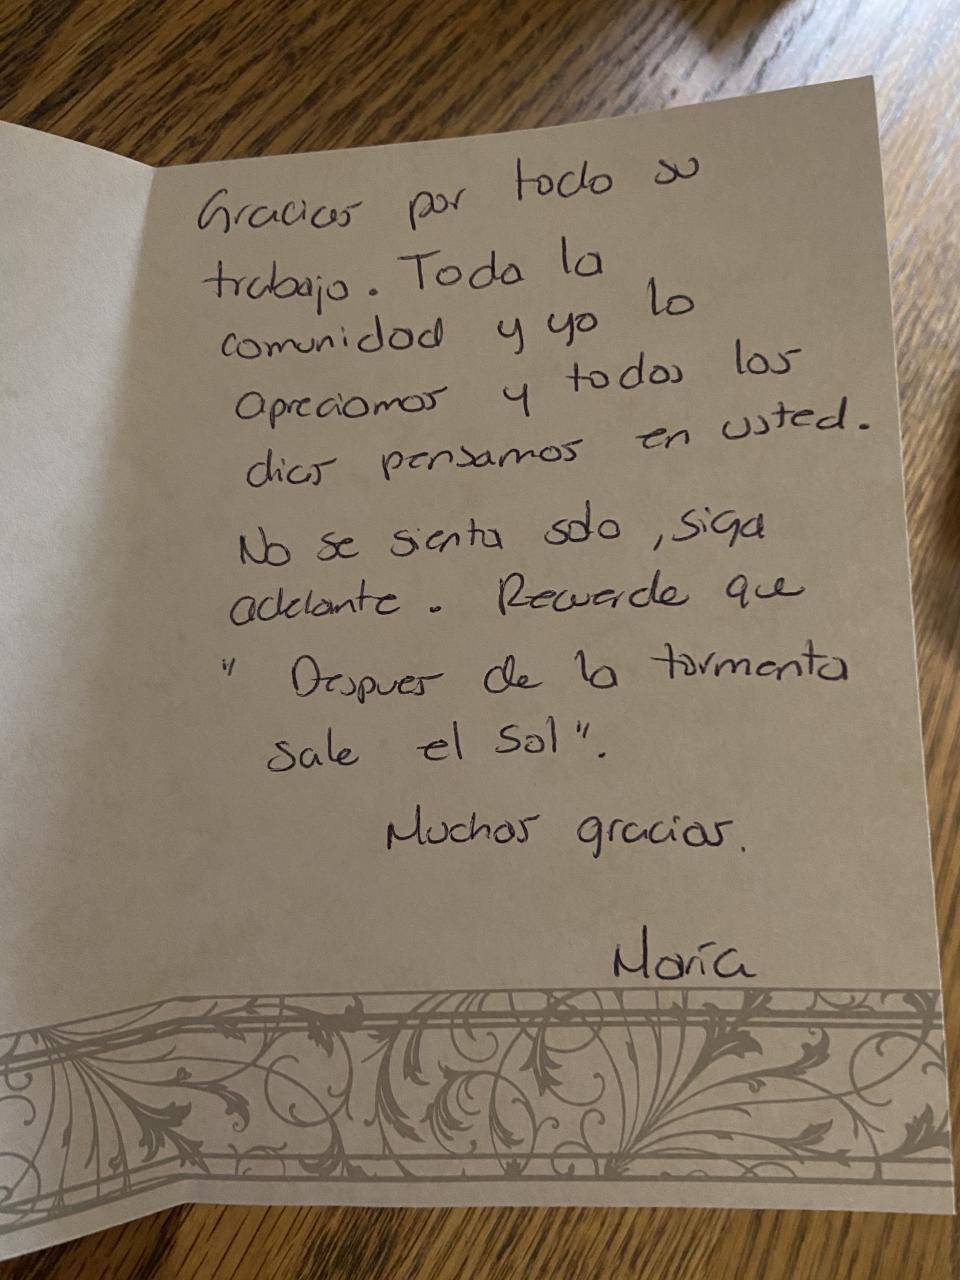 Gracias por todo su
trabajo. Toda la
comunidad y yo lo
apreciamos y todos los
dias pensamos en usted.
No se sienta solo, siga
adelante. Recuerde que
" Despues de la tormenta
sale el sol".
Muchas gracias.
María